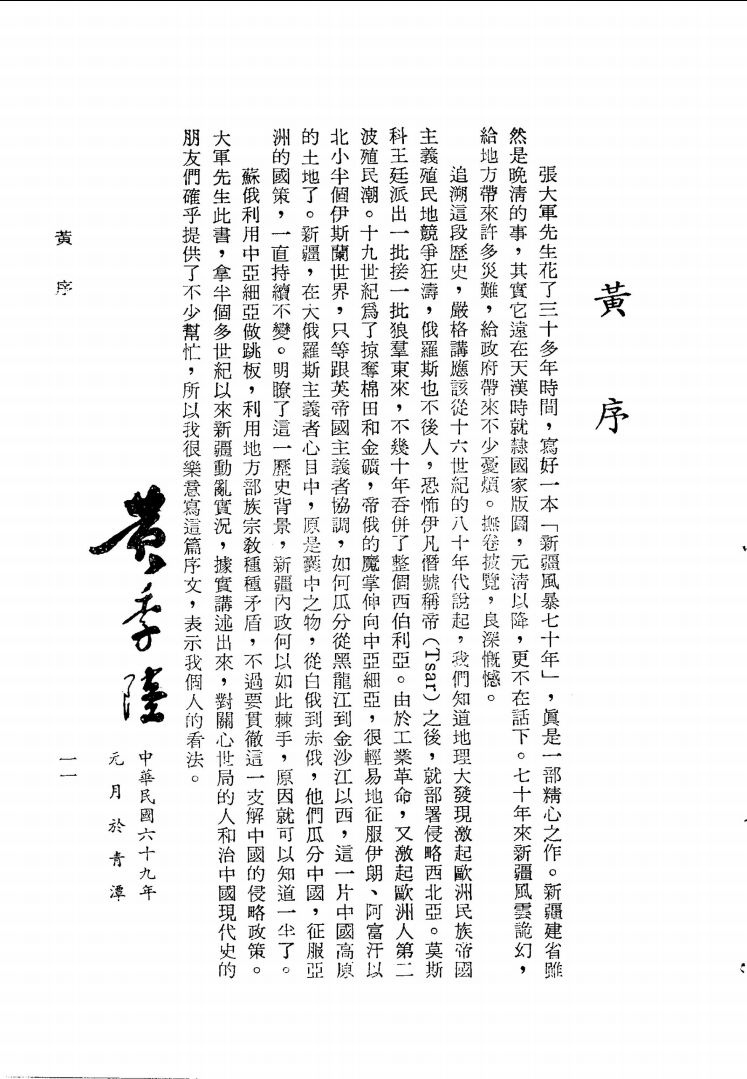 黃序
張大軍先生花了三十多年時間，寫好一本「新疆風暴七十年」，眞是一部精心之作。新疆建省雖
然是晚清的事，其實它遠在天漢時就隸國家版圖，元清以降，更不在話下。七十年來新疆風雲詭幻，
給地方帶來許多災難，給政府帶來不少憂煩。撫卷披覽，良深慨憾。
追溯這段歷史，嚴格講應該從十六世紀的八十年代說起，我們知道地理大發現激起歐洲民族帝國
主義殖民地競爭狂濤，俄羅斯也不後人，恐怖伊凡僭號稱帝（Tsar）之後，就部署侵略西北亞。莫斯
科王廷派出一批接一批狼羣東來，不幾十年吞併了整個西伯利亞。由於工業革命，又激起歐洲人第二
波殖民潮。十九世紀爲了掠奪棉田和金礦，帝俄的魔掌伸向中亞細亞，很輕易地征服伊朗、阿富汗以
北小半個伊斯蘭世界，只等跟英帝國主義者協調，如何瓜分從黑龍江到金沙江以西，這一片中國高原
的土地了。新疆，在大俄羅斯主義者心目中，原是囊中之物，從白俄到赤俄，他們瓜分中國，征服亞
洲的國策，一直持續不變。明瞭了這一歷史背景，新疆內政何以如此棘手，原因就可以知道一半了。
蘇俄利用中亞細亞做跳板，利用地方部族宗教種種矛盾，不過要貫徹這一支解中國的侵略政策。
大軍先生此書，拿半個多世紀以來新疆動亂實況，據實講述出來，對關心世局的人和治中國現代史的
朋友們確乎提供了不少幫忙，所以我很樂意寫這篇序文，表示我個人的看法。
黃季陸
中華民國六十九年
元月於青潭
黃序
一一